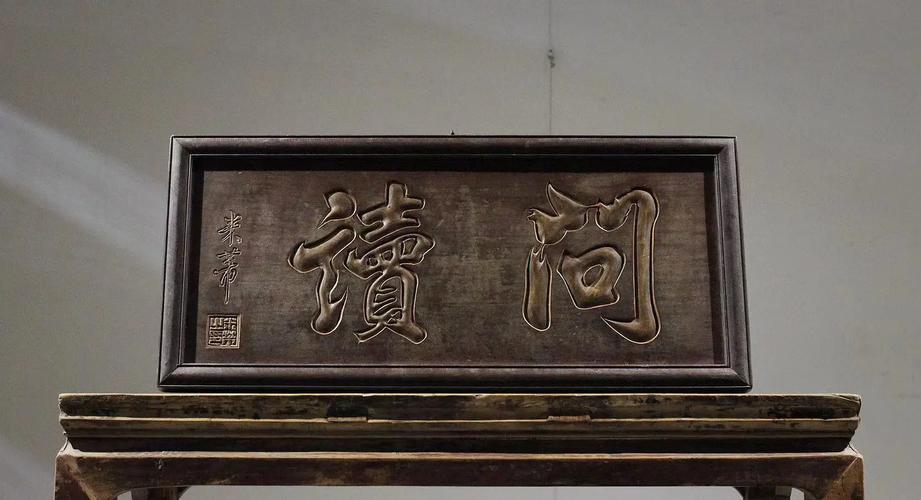 問讀
米芾